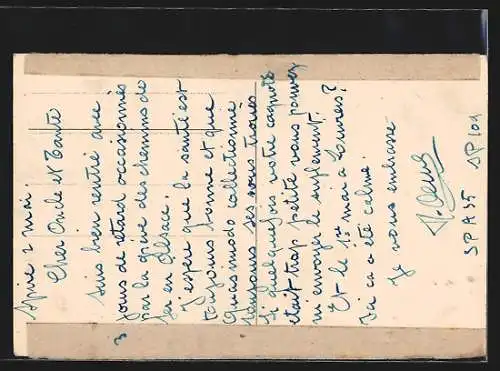 Spire 2 mai.
Cher Oncle et Tante
suis bien rentré avec
3 jours de retard occasionnés
par la grève des chemins de
fer en Alsace.
J'espère que la santé est
toujours bonne et que
Quasimodo collectionne
toujours ses sous troués
Si quelquefois votre cagnotte
était trop petite vous pouvez
m'envoyer le supplément.
Et le 1er mai à Tours?
Ici ça a été calme.
Je vous embrasse
SPA 35 SP 109